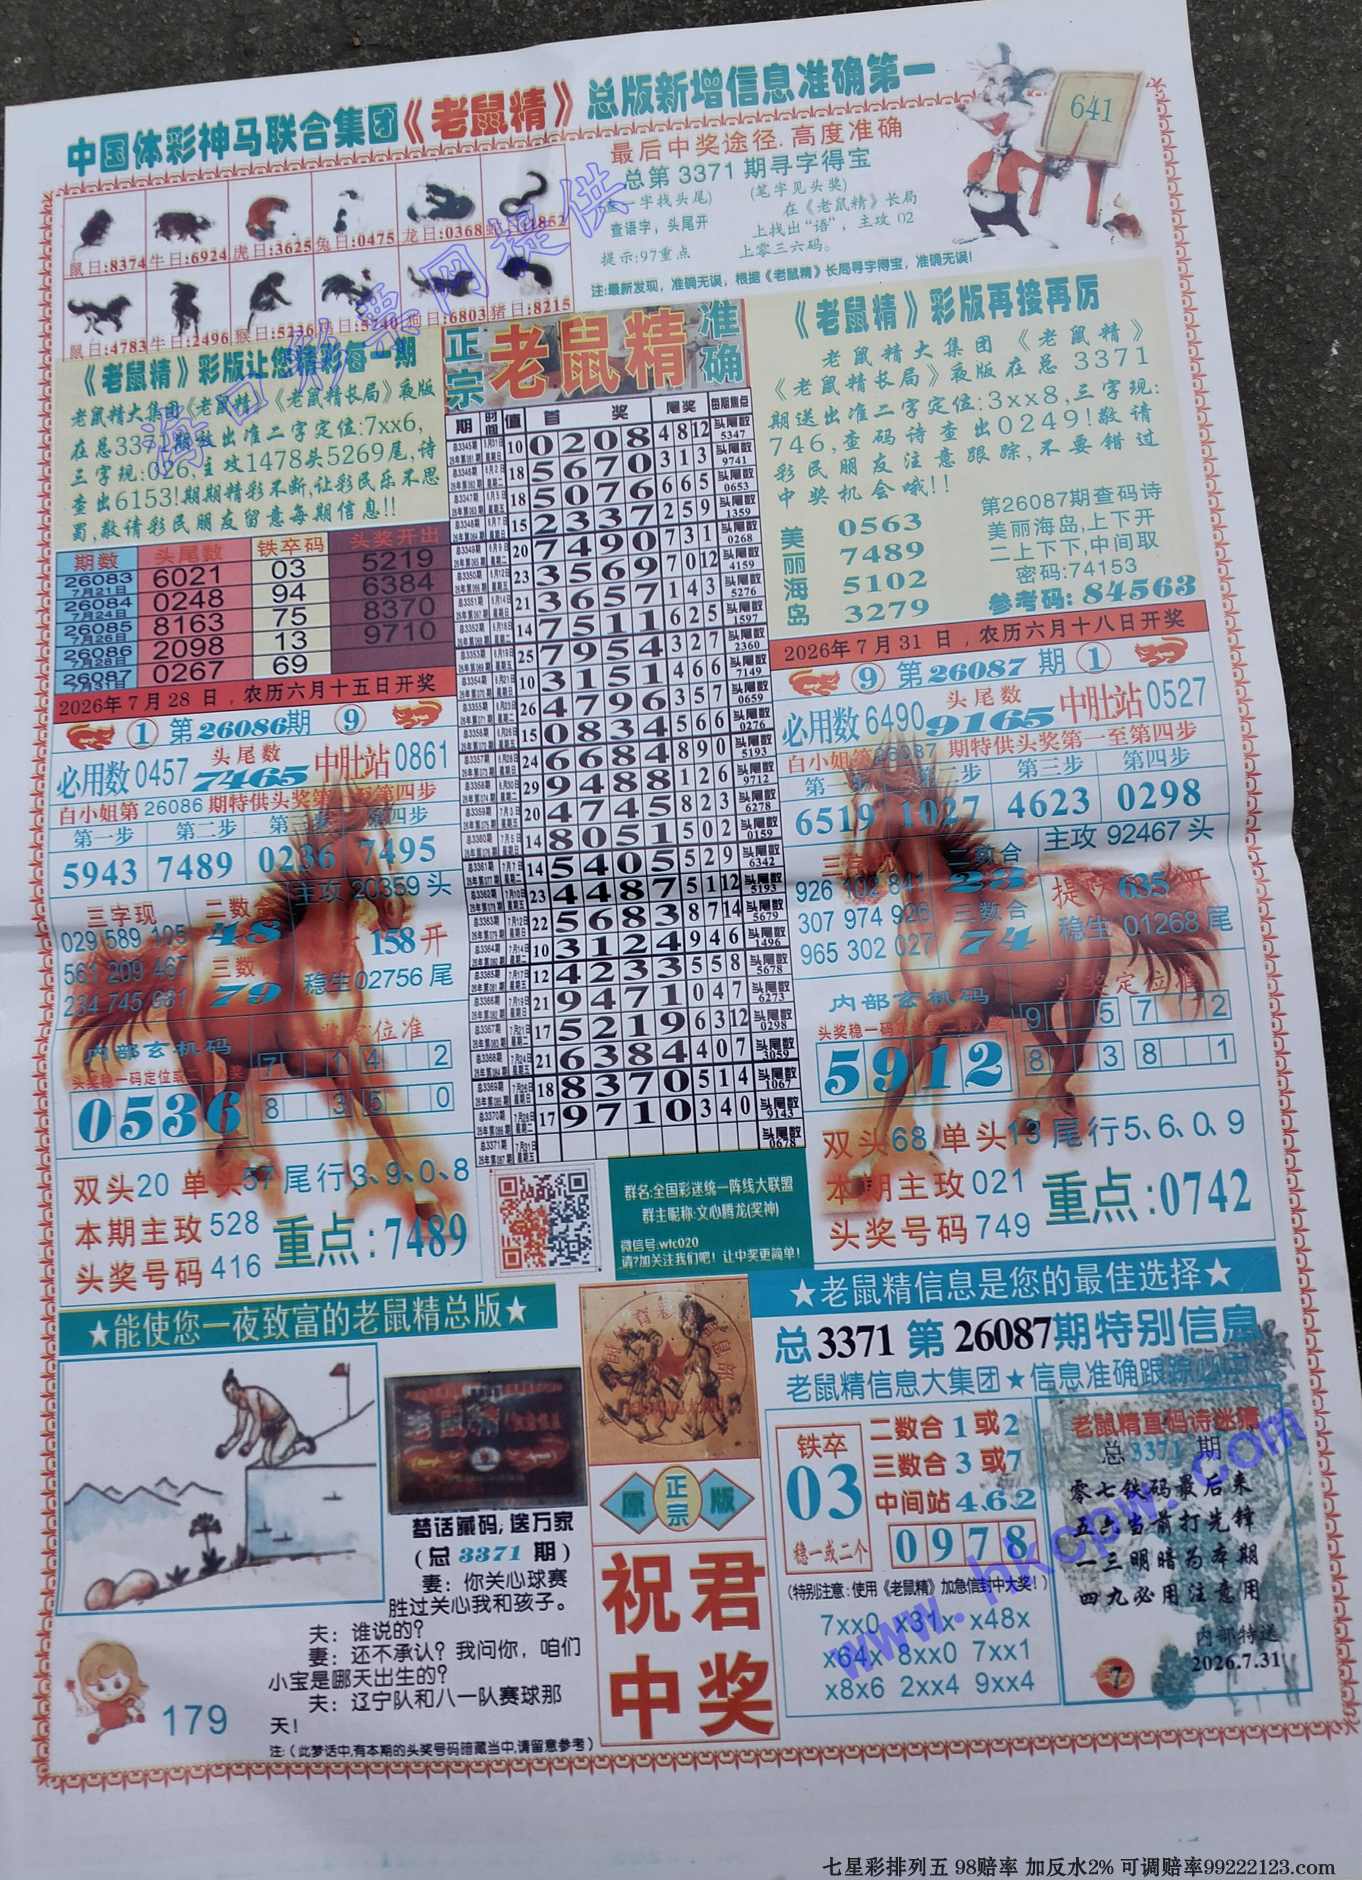 中国体彩神马联合集团《老鼠精》总版新增信息准确第一
641
最后中奖途径.高度准确
总第 3371 期寻字得宝
一字找头尾)
(笔字见头奖)
查语字，头尾开
提示:97重点
在《老鼠精》长局
上找出“语”，主攻 02
上零三六码。
注:最新发现，准确无误，根据《老鼠精》长局寻字得宝，准确无误!
鼠日:8374 牛日:6924 虎日:3625 兔日:0475 龙日:0368 蛇日:1852
鼠日:4783 牛日:2496 猴日:5236 鸡日:5240 狗日:6803 猪日:8215
《老鼠精》彩版让您精彩每一期
老鼠精大集团《老鼠精》《老鼠精长局》夜版
在总3371期敬出准二字定位:7xx6,
三字现:026,主攻1478头5269尾,诗
查出6153!期期精彩不断,让彩民乐不思
蜀,敬请彩民朋友留意每期信息!!
期数 头尾数 铁卒码 头奖开出
26083 7月21日 6021 03 5219
26084 7月24日 0248 94 6384
26085 7月26日 8163 75 8370
26086 7月28日 2098 13 9710
26087 7月31日 0267 69
2026年7月28日，农历六月十五日开奖
① 第26086期 ⑨
必用数0457 头尾数 7465 中肚站0861
白小姐第26086期特供头奖第一至第四步
第一步 第二步 第三步 第四步
5943 7489 0236 7495
三字现 二数合 48 主攻 20359 头
029 589 105
561 209 467
234 745 981
三数 79
158开
稳生02756尾
内部玄机码
头奖定位准
7 1 4 2
8 3 5 0
0536
双头20 单头57 尾行3、9、0、8
本期主攻528
头奖号码416
重点:7489
正宗 老鼠精 准确
期 时间 值 首奖 尾奖 每期焦点
总3345期 10 0208 4 8 12 头尾数 5347
总3346期 18 5670 3 1 3 头尾数 9741
总3347期 18 5076 6 6 5 头尾数 0653
总3348期 15 2337 2 5 9 头尾数 1359
总3349期 20 7490 7 3 1 头尾数 0268
总3350期 23 3569 7 0 12 头尾数 4159
总3351期 21 3657 1 4 3 头尾数 5276
总3352期 14 7511 6 2 5 头尾数 1597
总3353期 25 7954 3 2 7 头尾数 2360
总3354期 10 3151 4 6 7 头尾数 7149
总3355期 26 4796 3 5 7 头尾数 0659
总3356期 15 0834 5 6 6 头尾数 0276
总3357期 24 6684 8 9 0 头尾数 5193
总3358期 29 9488 1 2 6 头尾数 9712
总3359期 20 4745 8 2 3 头尾数 6278
总3360期 14 8051 5 0 2 头尾数 0159
总3361期 14 5405 5 2 9 头尾数 6342
总3362期 23 4487 5 1 12 头尾数 5193
总3363期 22 5683 8 7 14 头尾数 5679
总3364期 10 3124 9 4 6 头尾数 1496
总3365期 12 4233 5 5 8 头尾数 5678
总3366期 21 9471 0 4 7 头尾数 6273
总3367期 17 5219 6 3 12 头尾数 0298
总3368期 21 6384 4 0 7 头尾数 3059
总3369期 18 8370 5 1 4 头尾数 1067
总3370期 17 9710 3 4 0 头尾数 9143
总3371期 头尾数 0678
《老鼠精》彩版再接再厉
老鼠精大集团《老鼠精》
《老鼠精长局》夜版在总3371
期送出准二字定位:3xx8,三字现:
746,查码诗查出0249!敬请
彩民朋友注意跟踪,不要错过
中奖机会哦!!
美丽海岛
0563
7489
5102
3279
第26087期查码诗
美丽海岛,上下开
二上下下,中间取
密码:74153
参考码:84563
2026年7月31日，农历六月十八日开奖
⑨ 第26087期 ①
必用数6490 头尾数 9165 中肚站0527
白小姐第26087期特供头奖第一至第四步
第一步 第二步 第三步 第四步
6519 1027 4623 0298
三字现 二数合 23 主攻 92467 头
926 102 841
307 974 926
965 302 027
三数合 74
635开
稳生01268尾
内部玄机码
头奖定位准
9 5 7 2
8 3 8 1
5912
双头68 单头13 尾行5、6、0、9
本期主攻021
头奖号码749
重点:0742
群名:全国彩迷统一阵线大联盟
群主昵称:文心腾龙(奖神)
微信号:wfc020
请?加关注我们吧！让中奖更简单!
★能使您一夜致富的老鼠精总版★
梦话藏码;送万家
(总 3371 期)
妻：你关心球赛
胜过关心我和孩子。
夫：谁说的?
妻：还不承认？我问你，咱们
小宝是哪天出生的?
夫：辽宁队和八一队赛球那
天!
注:(此梦话中,有本期的头奖号码暗藏当中,请留意参考)
179
原 正宗 版
祝君
中奖
★老鼠精信息是您的最佳选择★
总3371第26087期特别信息
老鼠精信息大集团★信息准确跟踪必中
铁卒
03
稳一或二个
二数合1或2
三数合3或7
中间站4.6.2
0978
(特别注意:使用《老鼠精》加急信封中大奖!)
7xx0 x31x x48x
x64x 8xx0 7xx1
x8x6 2xx4 9xx4
老鼠精直码诗迷猜
总 3371 期
零七铁码最后来
五六当前打先锋
一三明暗为本期
四九必用注意用
内部特送
2026.7.31
7
海口彩票网提供
www.hkcpw.com
七星彩排列五 98赔率 加反水2% 可调赔率99222123.com